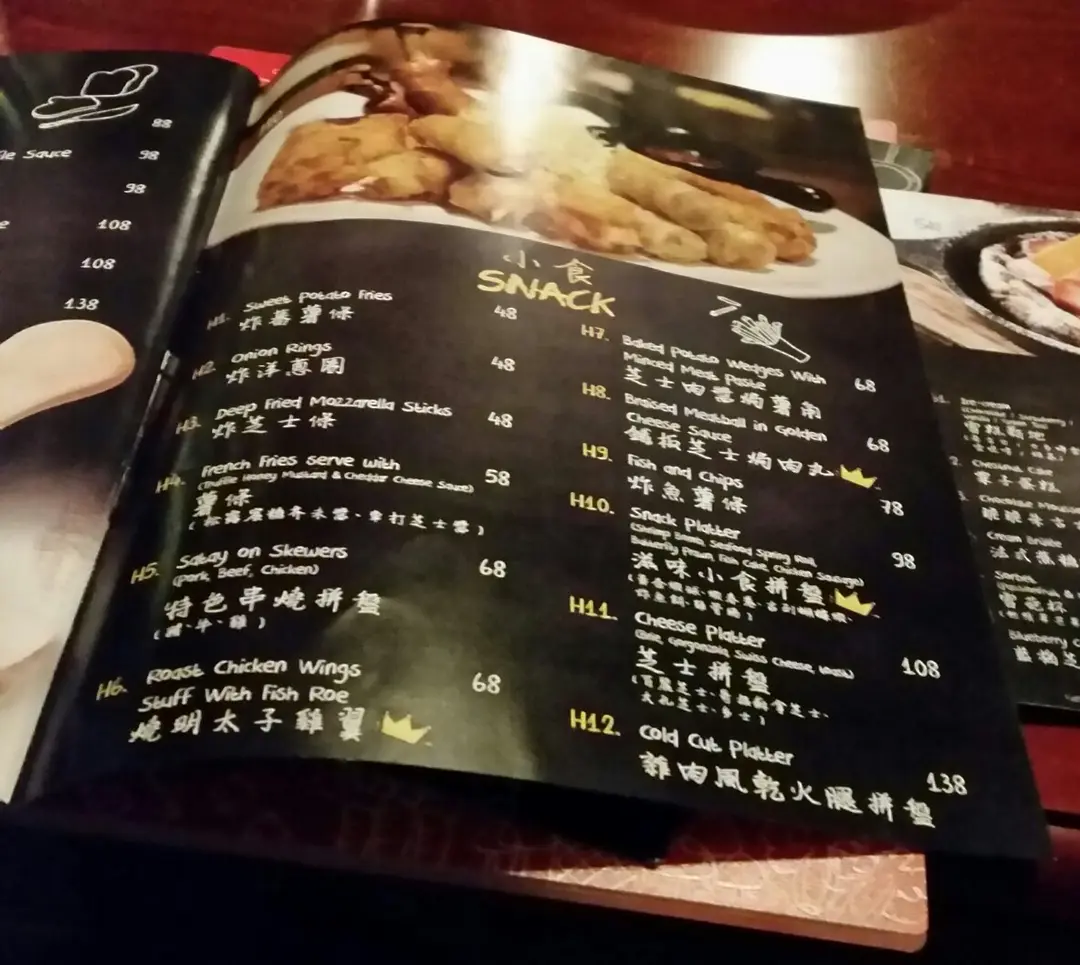 88
Sauce
98
98
108
108
138
小食
SNACK
H1. Sweet Potato Fries 48
炸蕃薯條
H2. Onion Rings 48
炸洋蔥圈
H3. Deep Fried Mozzarella Sticks 48
炸芝士條
H4. French Fries serve with 58
(Truffle Honey Mustard & Cheddar Cheese Sauce)
薯條
H5. Satay on Skewers 68
(Pork, Beef, Chicken)
特色串燒拼盤
(豬、牛、雞)
H6. Roast Chicken Wings
Stuff With Fish Roe 68
燒明太子雞翼
H7. Baked Potato Wedges With
Minced Meat Paste 68
芝士肉醬焗薯角
H8. Braised Meatball in Golden
Cheese Sauce 68
鐵板芝士焗肉丸
H9. Fish and Chips 78
炸魚薯條
H10. Snack Platter 98
(Shrimp Bomb, Seafood Spring Roll,
Butterfly Prawn, Fish Cake, Chicken Sausage)
滋味小食拼盤
H11. Cheese Platter 108
(Brie, Gorgonzola, Swiss Cheese,
芝士拼盤
H12. Cold Cut Platter 138
雜肉風乾火腿拼盤
Ice-cream
Chestnut Cake
栗子蛋糕
Chocolate Mousse
Cream Brulee
法式焦糖
Sorbet
Blueberry